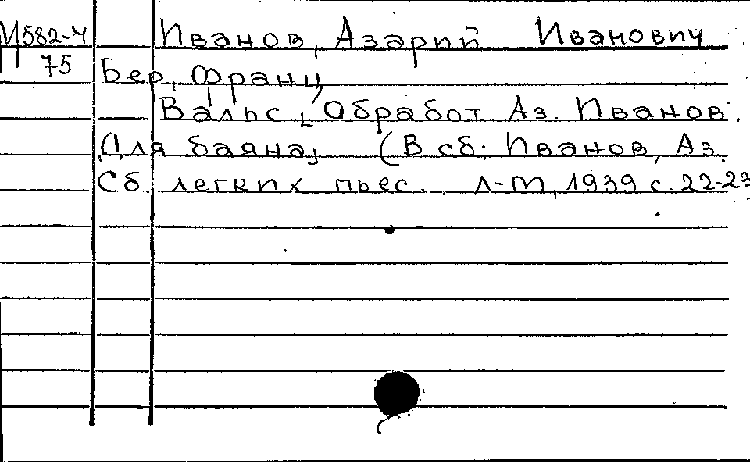 М582-4 Иванов, Азарий Иванович
75 Бер, Франц
Вальс, Обработ Аз. Иванов.
Для баяна, (В сб. Иванов, Аз.
Сб. легких пьес. Л-М, 1939 с. 22-23